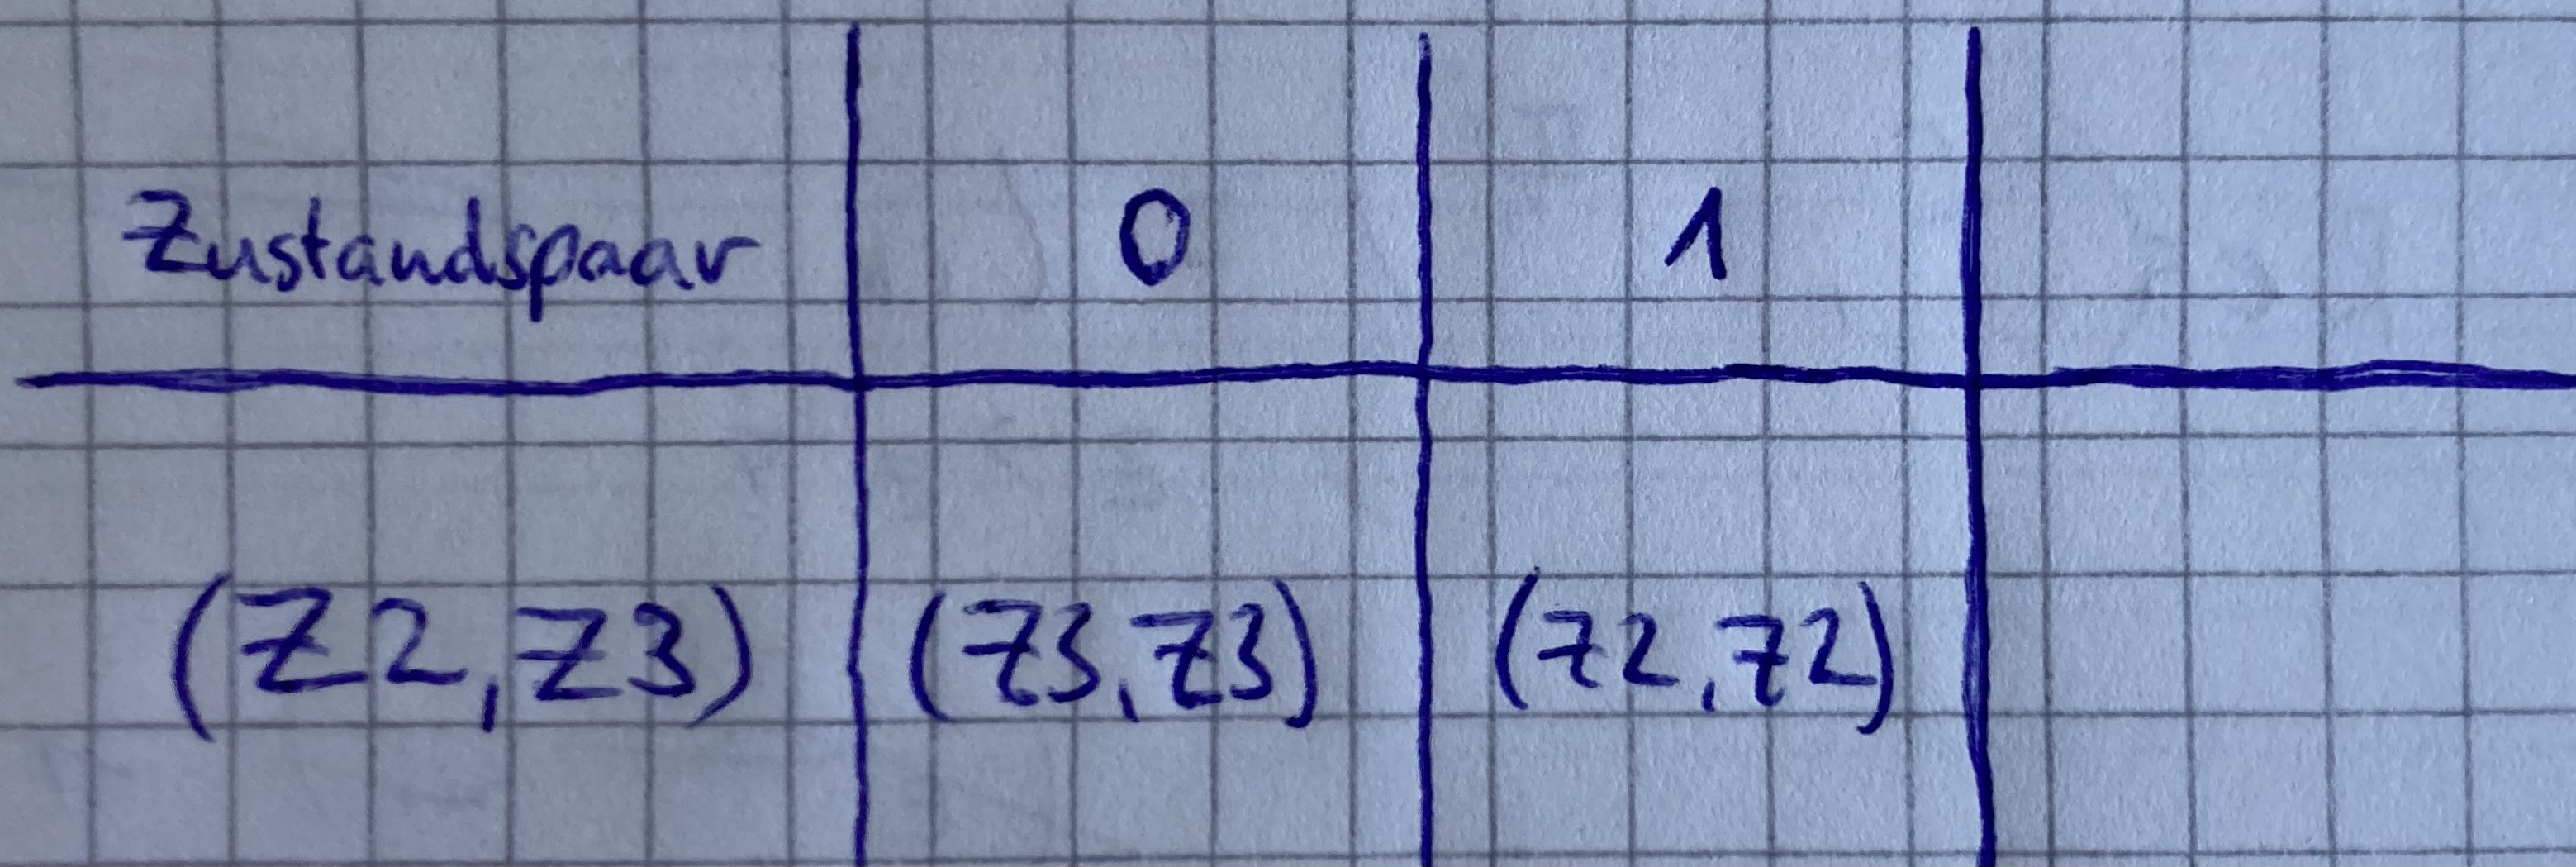 Zustandspaar 0 1
(Z2,Z3) (Z3,Z3) (Z2,Z2)